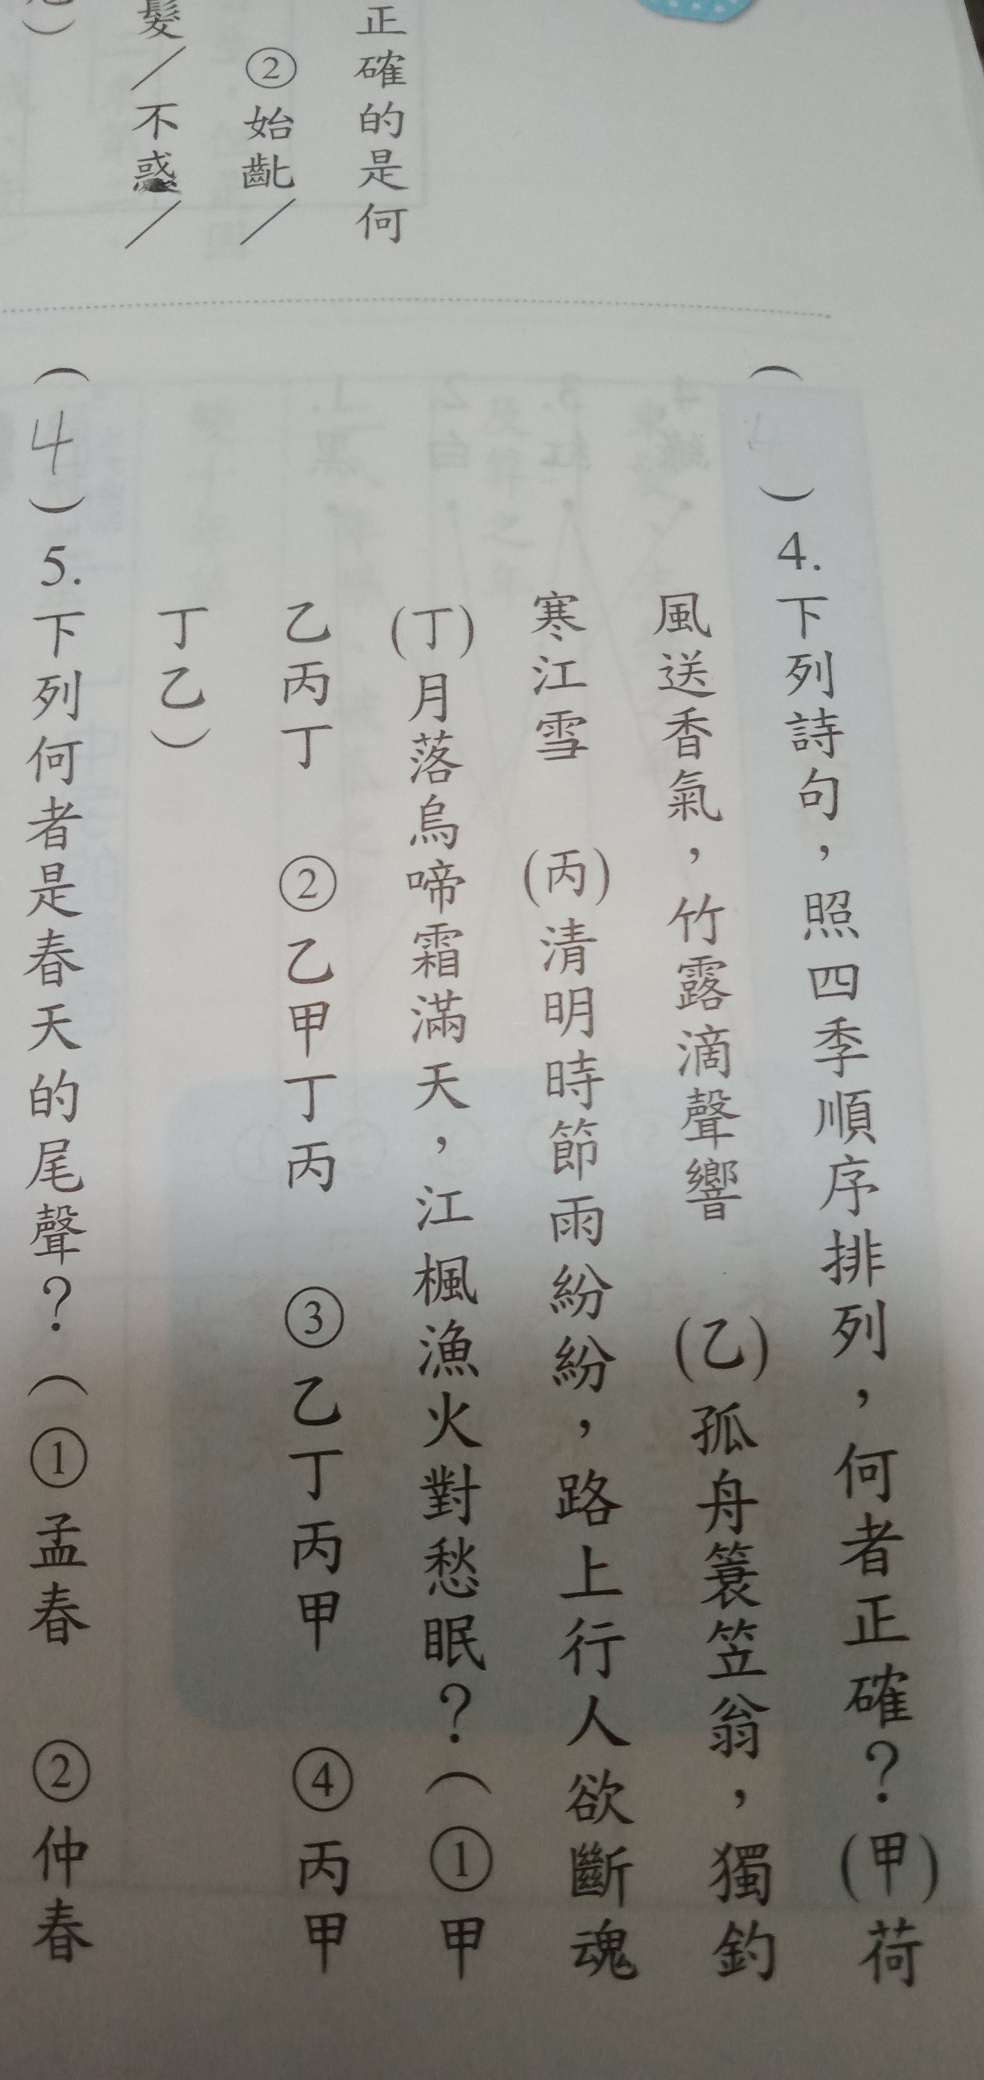 正確的是何
②始齔／
髮／不惑／
（　）4.下列詩句，照四季順序排列，何者正確？(甲)荷
風送香氣，竹露滴聲響　(乙)孤舟簑笠翁，獨釣
寒江雪　(丙)清明時節雨紛紛，路上行人欲斷魂
(丁)月落烏啼霜滿天，江楓漁火對愁眠？（①甲
乙丙丁　②乙甲丁丙　③乙丁丙甲　④丙甲
丁乙）
（4）5.下列何者是春天的尾聲？（①孟春　②仲春